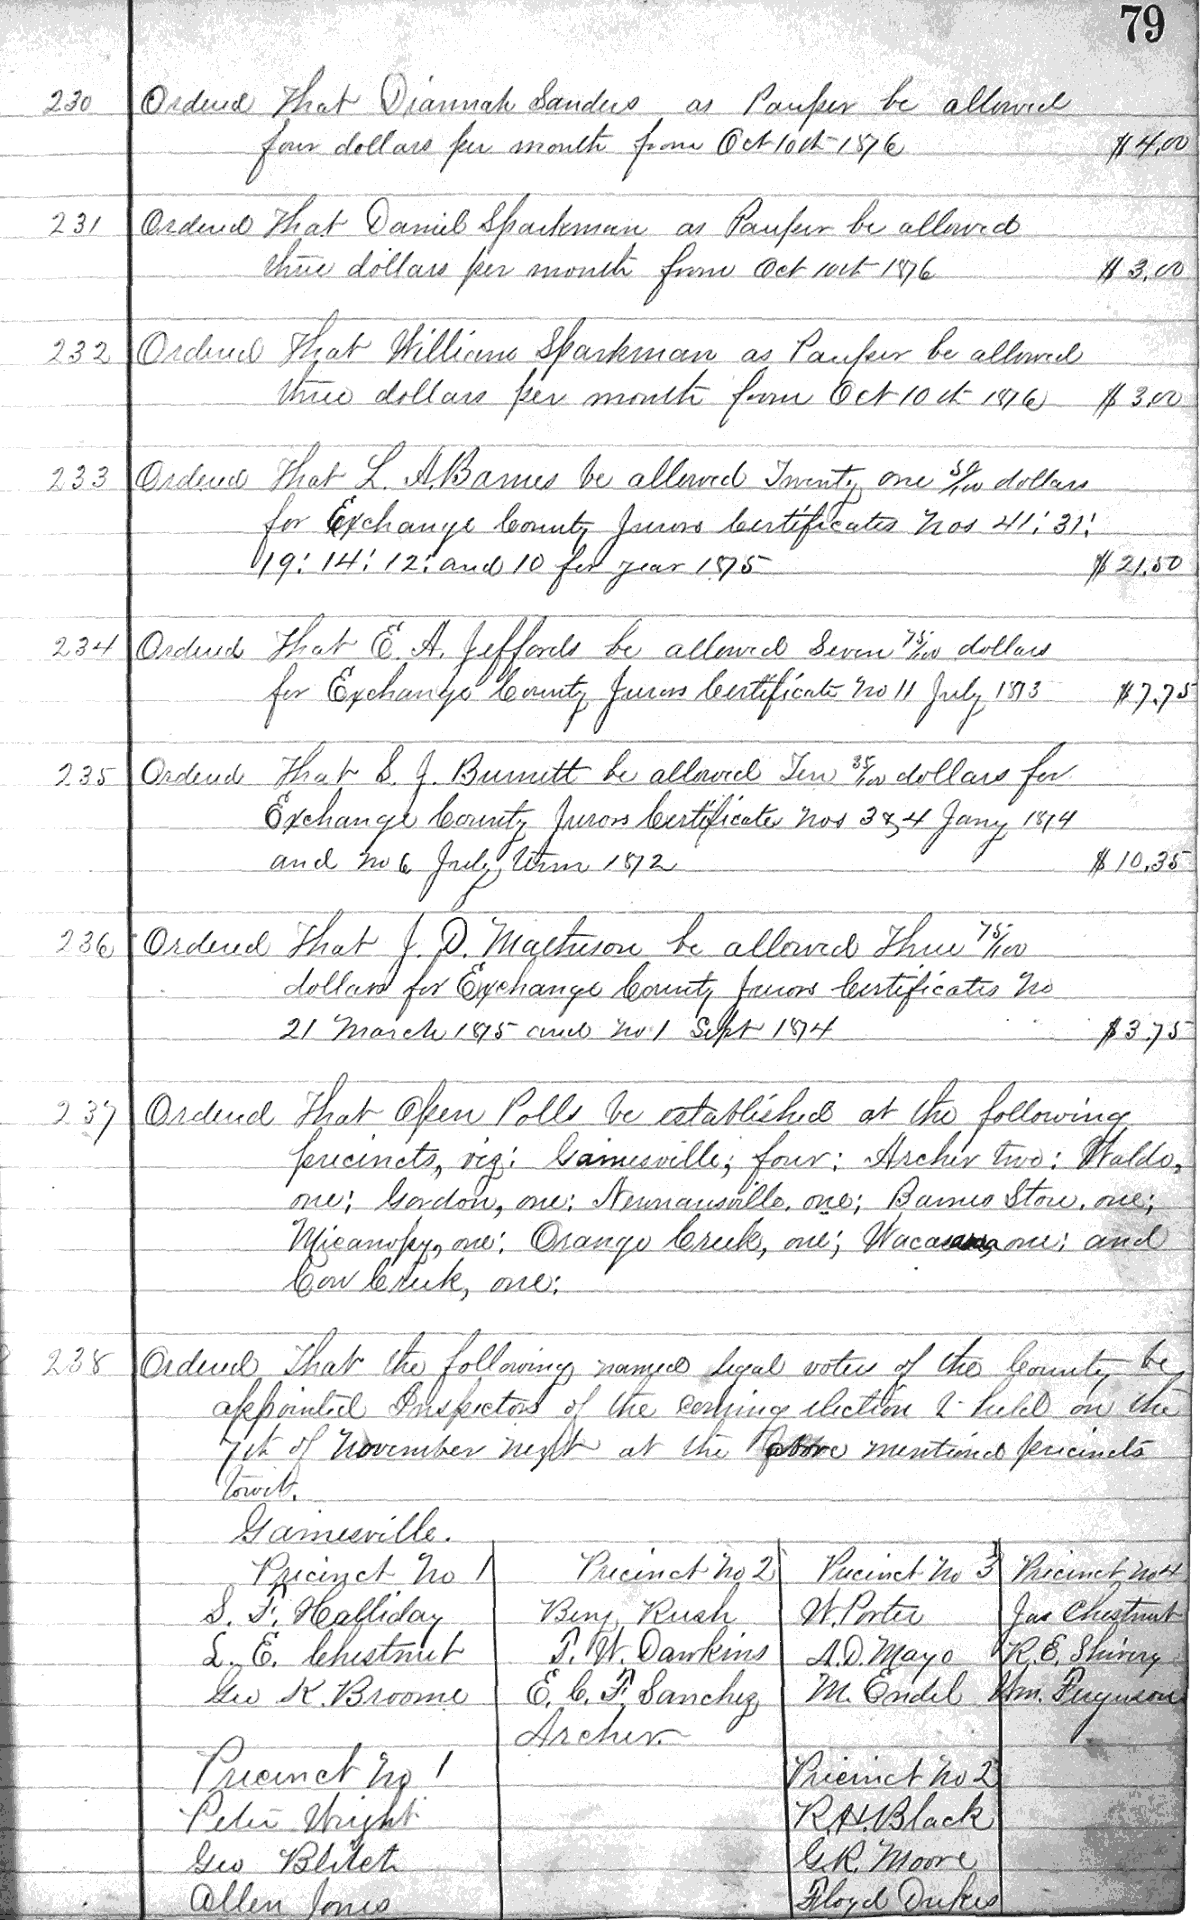 79
230 Ordered That Diannah Sanders as Pauper be allowed
four dollars per month from Oct 10th 1876 $4.00
231 Ordered That Daniel Sparkman as Pauper be allowed
three dollars per month from Oct 10th 1876 $3.00
232 Ordered That William Sparkman as Pauper be allowed
three dollars per month from Oct 10th 1876 $3.00
233 Ordered That L. A. Barnes be allowed Twenty one 50/100 dollars
for Exchange County Jurors Certificates Nos 41; 31;
19; 14; 12; and 10 for year 1875 $21.50
234 Ordered That E. A. Jeffords be allowed Seven 75/100 dollars
for Exchange County Jurors Certificate No 11 July 1873 $7.75
235 Ordered That S. J. Burnett be allowed Ten 35/100 dollars for
Exchange County Jurors Certificates Nos 3 & 4 Jany 1874
and No 6 July term 1872 $10.35
236 Ordered That J. D. Matheson be allowed Three 75/100
dollars for Exchange County Jurors Certificates No
21 March 1875 and No 1 Sept 1874 $3.75
237 Ordered That Open Polls be established at the following
precincts, viz: Gainesville; four; Archer two; Waldo,
one; Gordon, one; Newnansville, one; Barnes Store, one;
Micanopy, one; Orange Creek, one; one; and
Cow Creek, one;
238 Ordered That the following named legal voters of the County be
appointed Inspectors of the coming election to held on the
7th of November next at the above mentioned precincts
towit.
Gainesville.
Precinct No 1 Precinct No 2 Precinct No 3 Precinct No 4
S. F. Halliday Benj. Rush W. Porter Jas Chestnut
L. E. Chestnut T. W. Dawkins A. D. Mayo R. E. Shivery
Geo K. Broome E. C. F. Sanchez M. Endel Wm. Ferguson
Archer.
Precinct No 1 Precinct No 2
Peter Wright R. H. Black
Geo Blitch G. R. Moore
Allen Jones Floyd Dukes